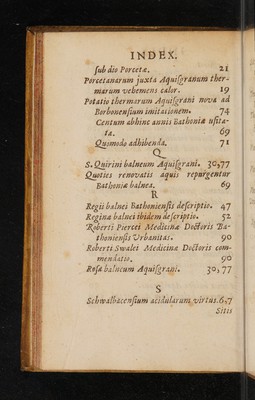 INDEX.
ſub dio Porcetæ. 21
Porcetanarum juxta Aquiſgranum ther-
marum vehemens calor. 19
Potatio thermarum Aquiſgrani nova ad
Borbonenſium imitationem. 74
Centum abhinc annis Bathoniæ uſita-
ta. 69
Quomodo adhibenda. 71
Q
S. Quirini balneum Aquiſgrani. 30,77
Quoties renovatis aquis repurgentur
Bathoniæ balnea. 69
R
Regii balnei Bathonienſis deſcriptio. 47
Reginæ balnei ibidem deſcriptio. 52
Roberti Piercei Medicinæ Doctoris Ba-
thonienſis Urbanitas. 90
Roberti Swalet Medicinæ Doctoris com-
mendatio. 90
Roſæ balneum Aquiſgrani. 30, 77
S
Schwalbacenſium acidularum virtus. 6,7
Sitis